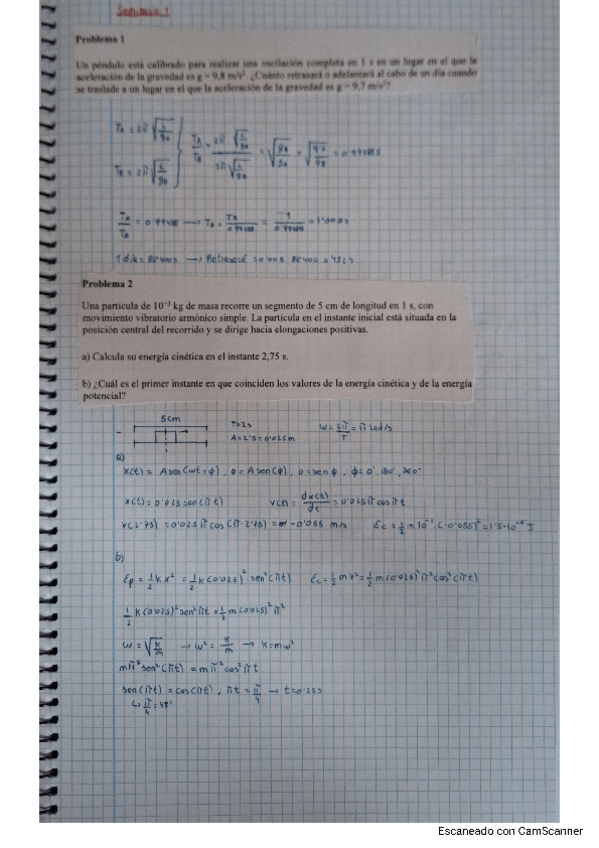 Semana 1
Problema 1
Un péndulo está calibrado para realizar una oscilación completa en 1 s en un lugar en el que la
aceleración de la gravedad es g = 9,8 m/s². ¿Cuánto retrasará o adelantará al cabo de un día cuando
se traslade a un lugar en el que la aceleración de la gravedad es g = 9,7 m/s²?
T_A = 2π √(L/g_A) } T_A/T_B = 2π √(L/g_A) / 2π √(L/g_B) = √(g_B/g_A) = √(9'7/9'8) = 0'99488
T_B = 2π √(L/g_B)
T_A/T_B = 0'99488 → T_B = T_A/0'99488 = /0'99488 = 1'005
1 día = 86400s → Retrasará =
Problema 2
Una partícula de 10⁻³ kg de masa recorre un segmento de 5 cm de longitud en 1 s, con
movimiento vibratorio armónico simple. La partícula en el instante inicial está situada en la
posición central del recorrido y se dirige hacia elongaciones positivas.
a) Calcula su energía cinética en el instante 2,75 s.
b) ¿Cuál es el primer instante en que coinciden los valores de la energía cinética y de la energía
potencial?
5cm T=2s ω = 2π/T = π rad/s
A=2'5=0'025m
a)
x(t) = A sen(ωt+ϕ), 0 = A sen(ϕ), 0 = sen ϕ, ϕ = 0°, 180°, 360°
x(t) = 0'025 sen(πt) v(t) = dx(t)/dt = 0'025π cos πt
v(2'75) = 0'025 π cos(π·2'75) = -0'055 m/s Ec = 1/2 · 10⁻³ · (-0'055)² = 1'5·10⁻⁶ J
b)
Ep = 1/2 K x² = 1/2 K (0'025)² · sen²(πt) Ec = 1/2 m v² = 1/2 m (0'025)² π² cos²(πt)
1/2 K (0'025)² sen² πt = 1/2 m (0'025)² π²
ω = √(K/m) → ω² = K/m → K = mω²
mπ² sen²(πt) = mπ² cos² πt
sen(πt) = cos(πt), πt = π/4 → t = 0'25 s
↳ π/4 = 45°
Escaneado con CamScanner